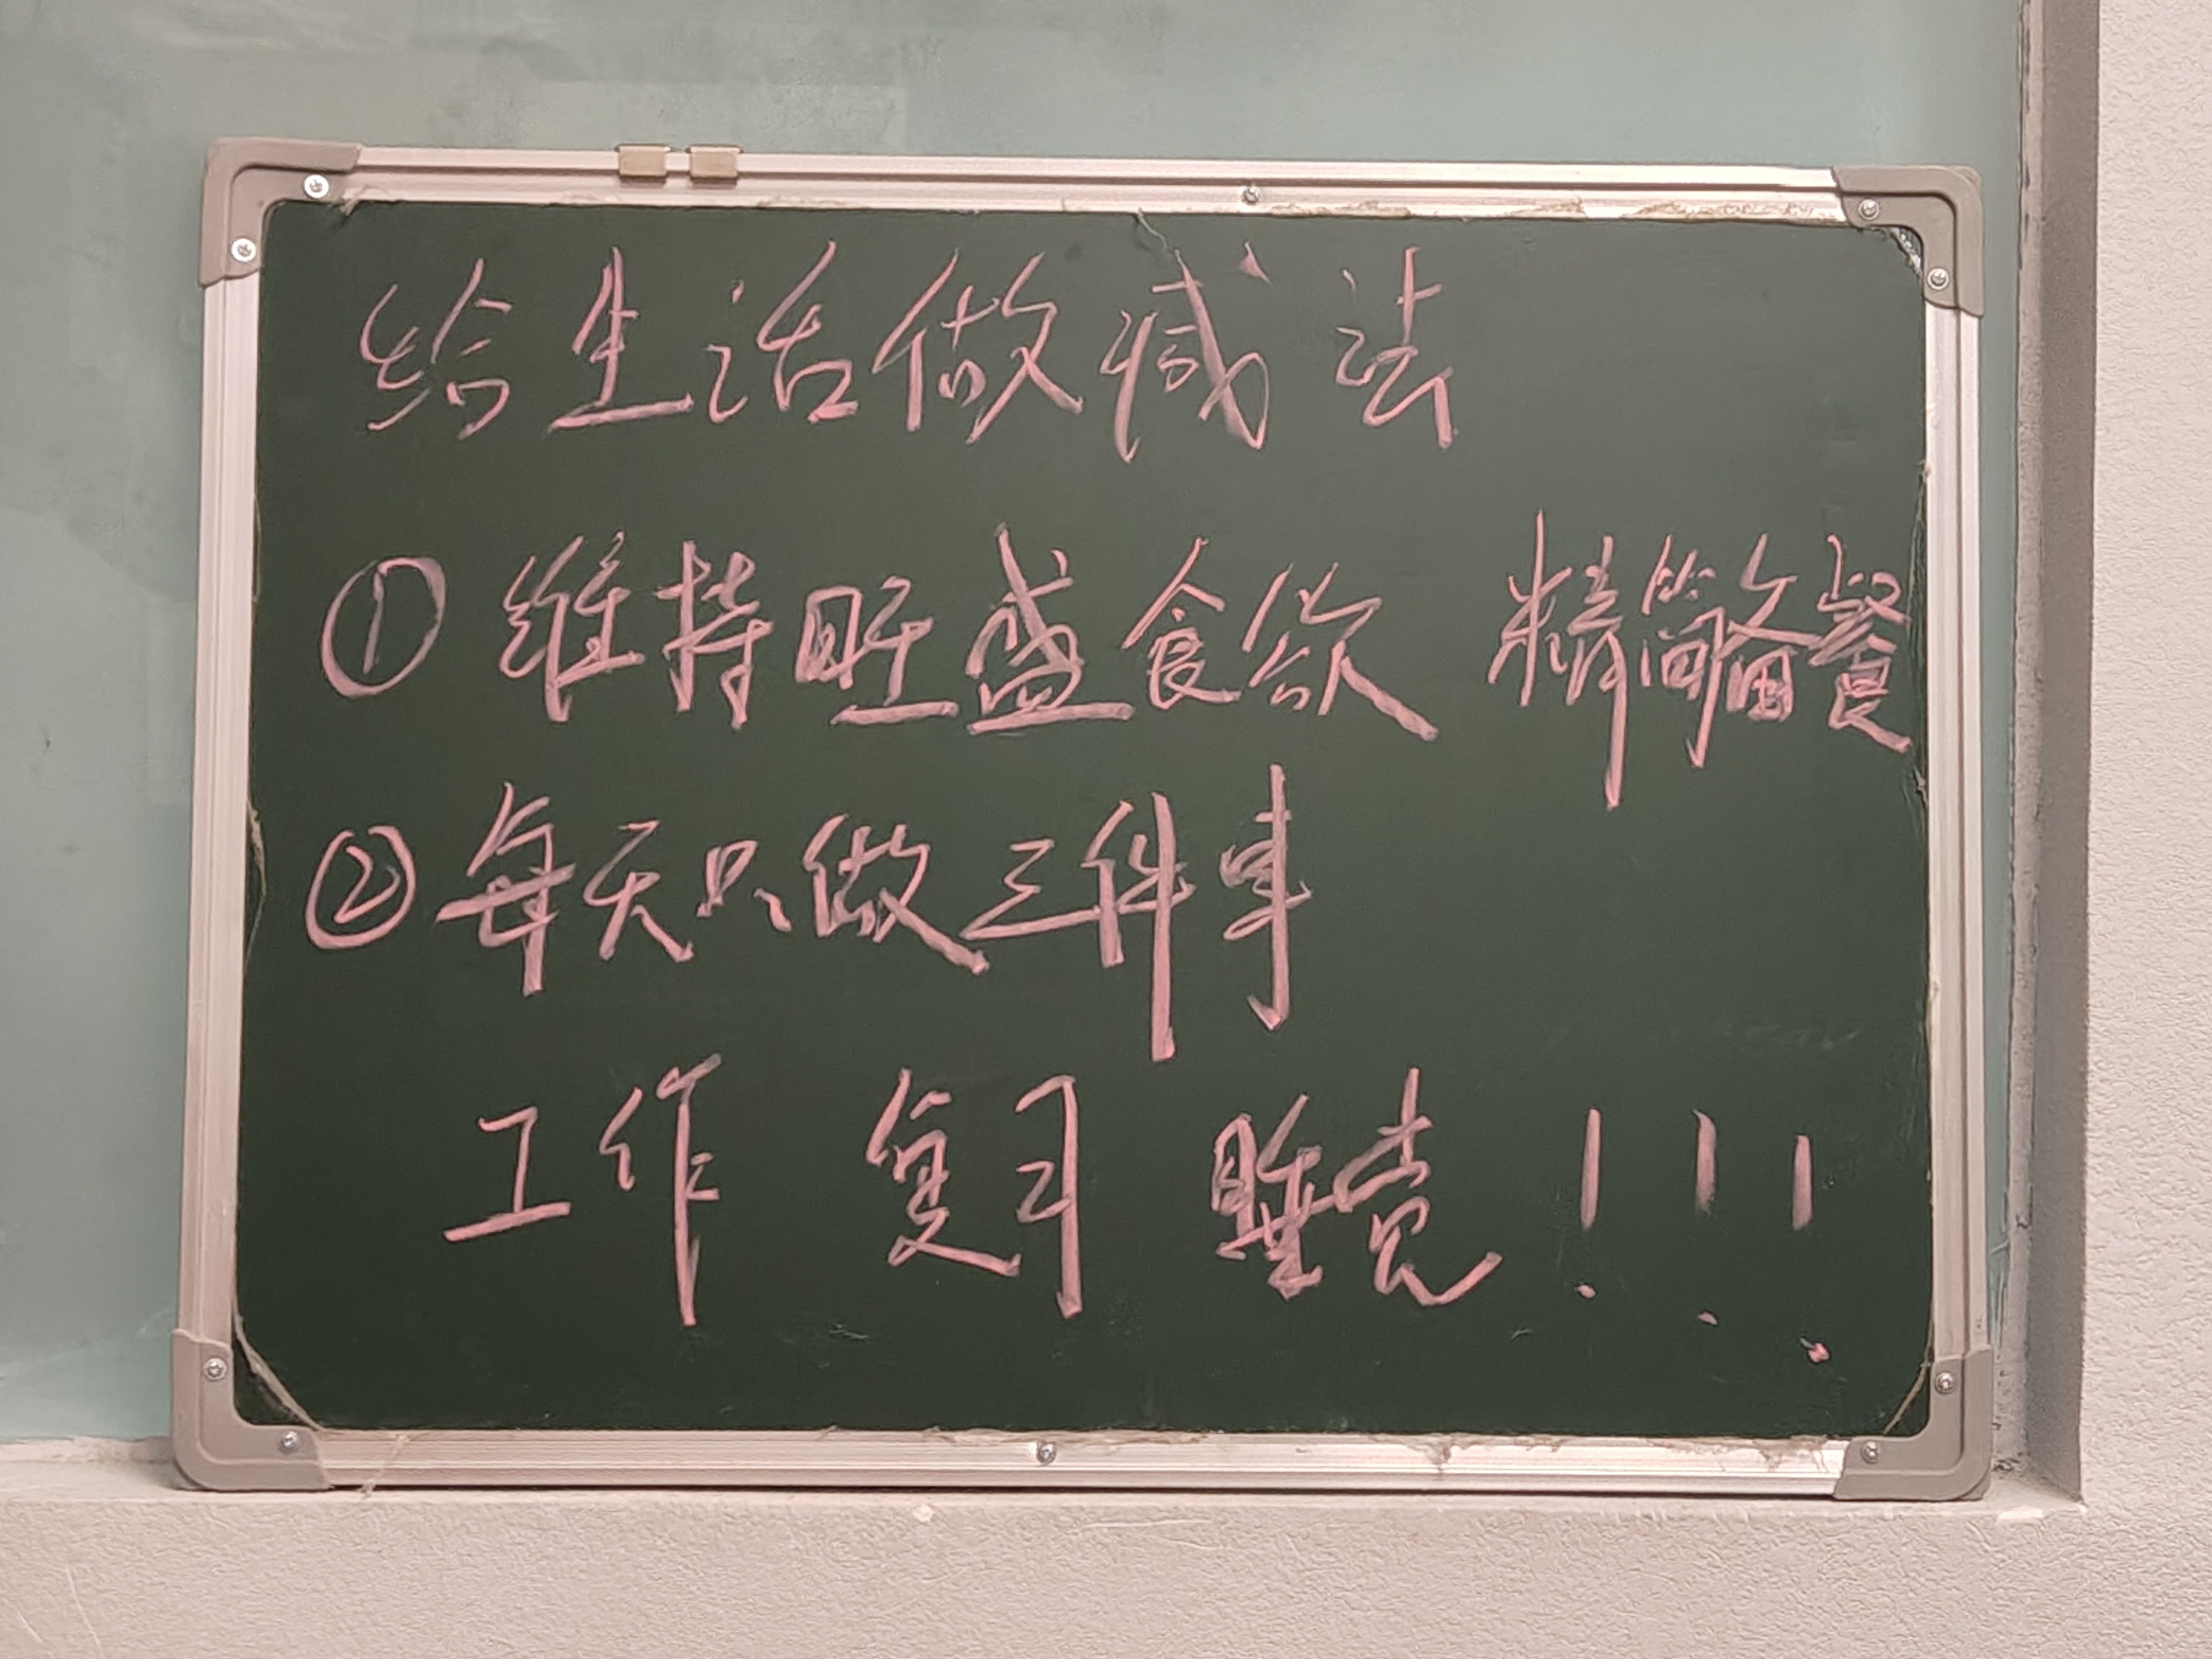 给生活做减法
① 维持旺盛食欲 精简备餐
② 每天只做三件事
工作 复习 睡觉!!!